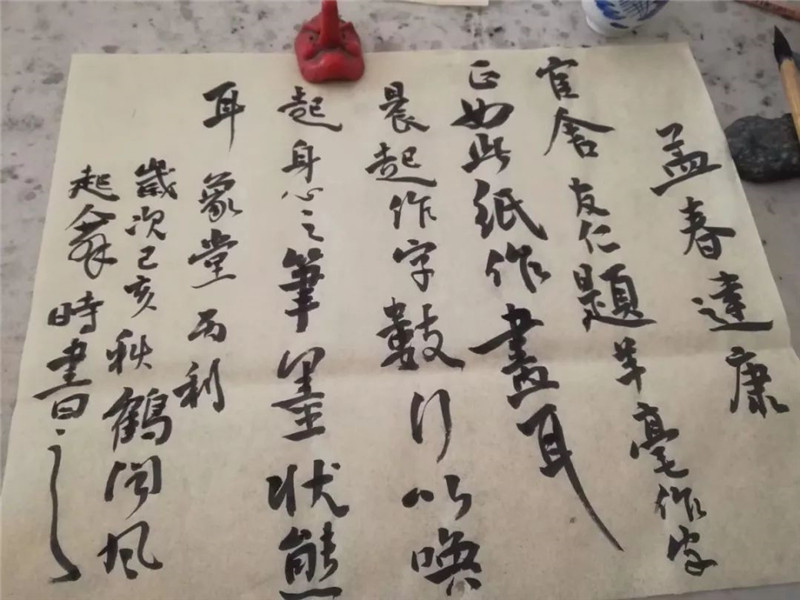 孟春達康
官舍友仁題羊毫作字
正如此紙作畫耳
晨起作字數行以喚
起身心之筆墨狀態
耳 象堂丙利
歲次己亥秋鶴閒風
起翁時書日